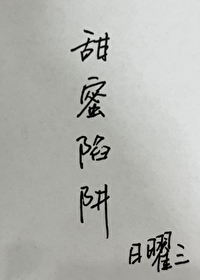 甜蜜陷阱
日曜三